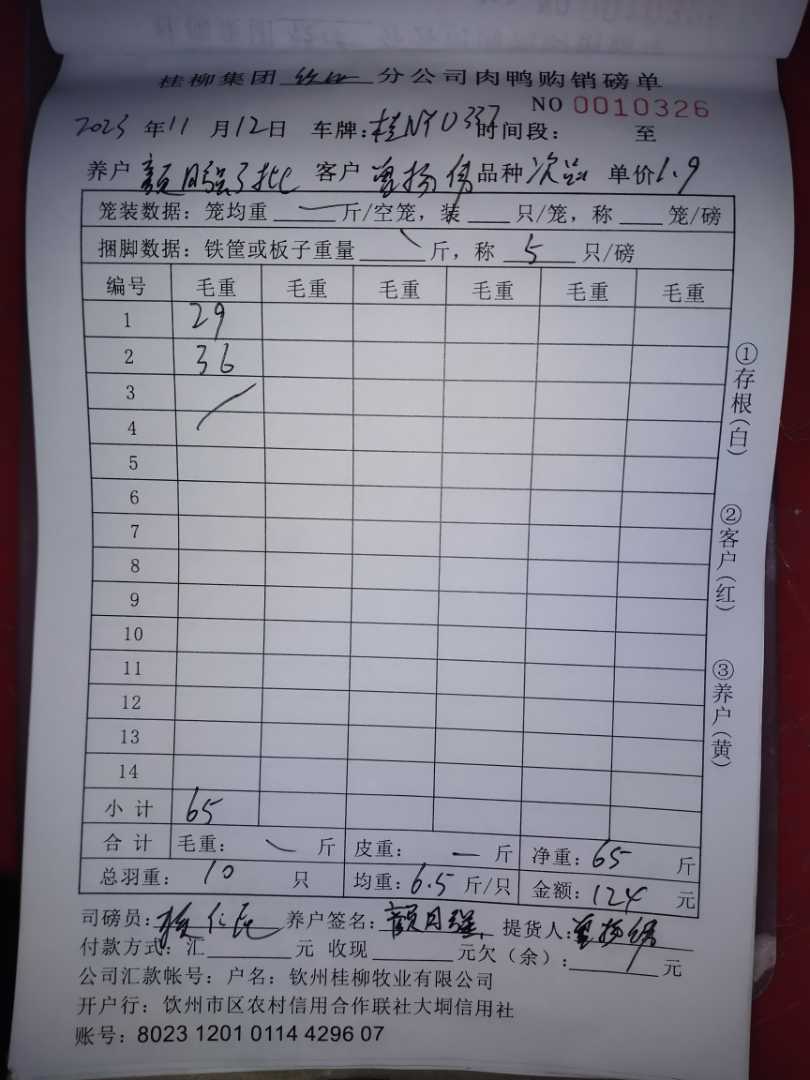 桂柳集团 分公司肉鸭购销磅单
NO 0010326
2025 年 11 月 12 日 车牌:桂NYU337 时间段: 至
养户 颜日强3批 客户 曾扬伟 品种 次品 单价 1.9
笼装数据:笼均重 一 斤/空笼,装 只/笼,称 笼/磅
捆脚数据:铁筐或板子重量 \ 斤,称 5 只/磅
编号 毛重 毛重 毛重 毛重 毛重 毛重
1 29
2 36
3
4
5
6
7
8
9
10
11
12
13
14
小计 65
合计 毛重: \ 斤 皮重: 一 斤 净重: 65 斤
总羽重: 10 只 均重: 6.5 斤/只 金额: 124 元
司磅员: 养户签名: 颜日强 提货人: 曾扬伟
付款方式:汇 元 收现 元欠(余): 元
公司汇款帐号:户名:钦州桂柳牧业有限公司
开户行:饮州市区农村信用合作联社大垌信用社
账号:8023 1201 0114 4296 07
①存根(白)
②客户(红)
③养户(黄)